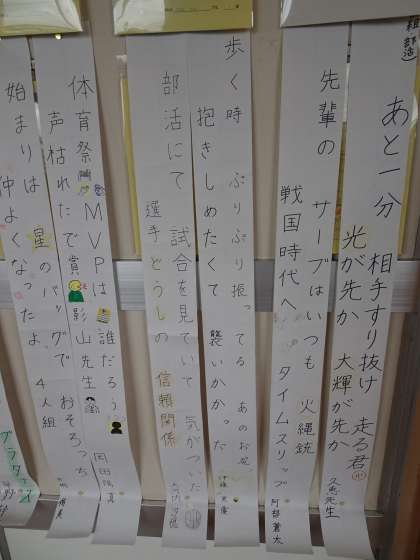 あと一分　相手すり抜け　走る君
光が先か　大輝が先か
久恵先生
先輩の　サーブはいつも　火縄銃
戦国時代へ　タイムスリップ
阿部蒼太
歩く時　ぷりぷり振ってる　あのお尻
抱きしめたくて　襲いかかった
部活にて　試合を見ていて　気がついた
選手どうしの　信頼関係
体育祭　MVPは　誰だろう
声枯れたで賞　影山先生
岡田陽真
始まりは　星のバッグで　おそろっち
仲よくなったよ　4人組